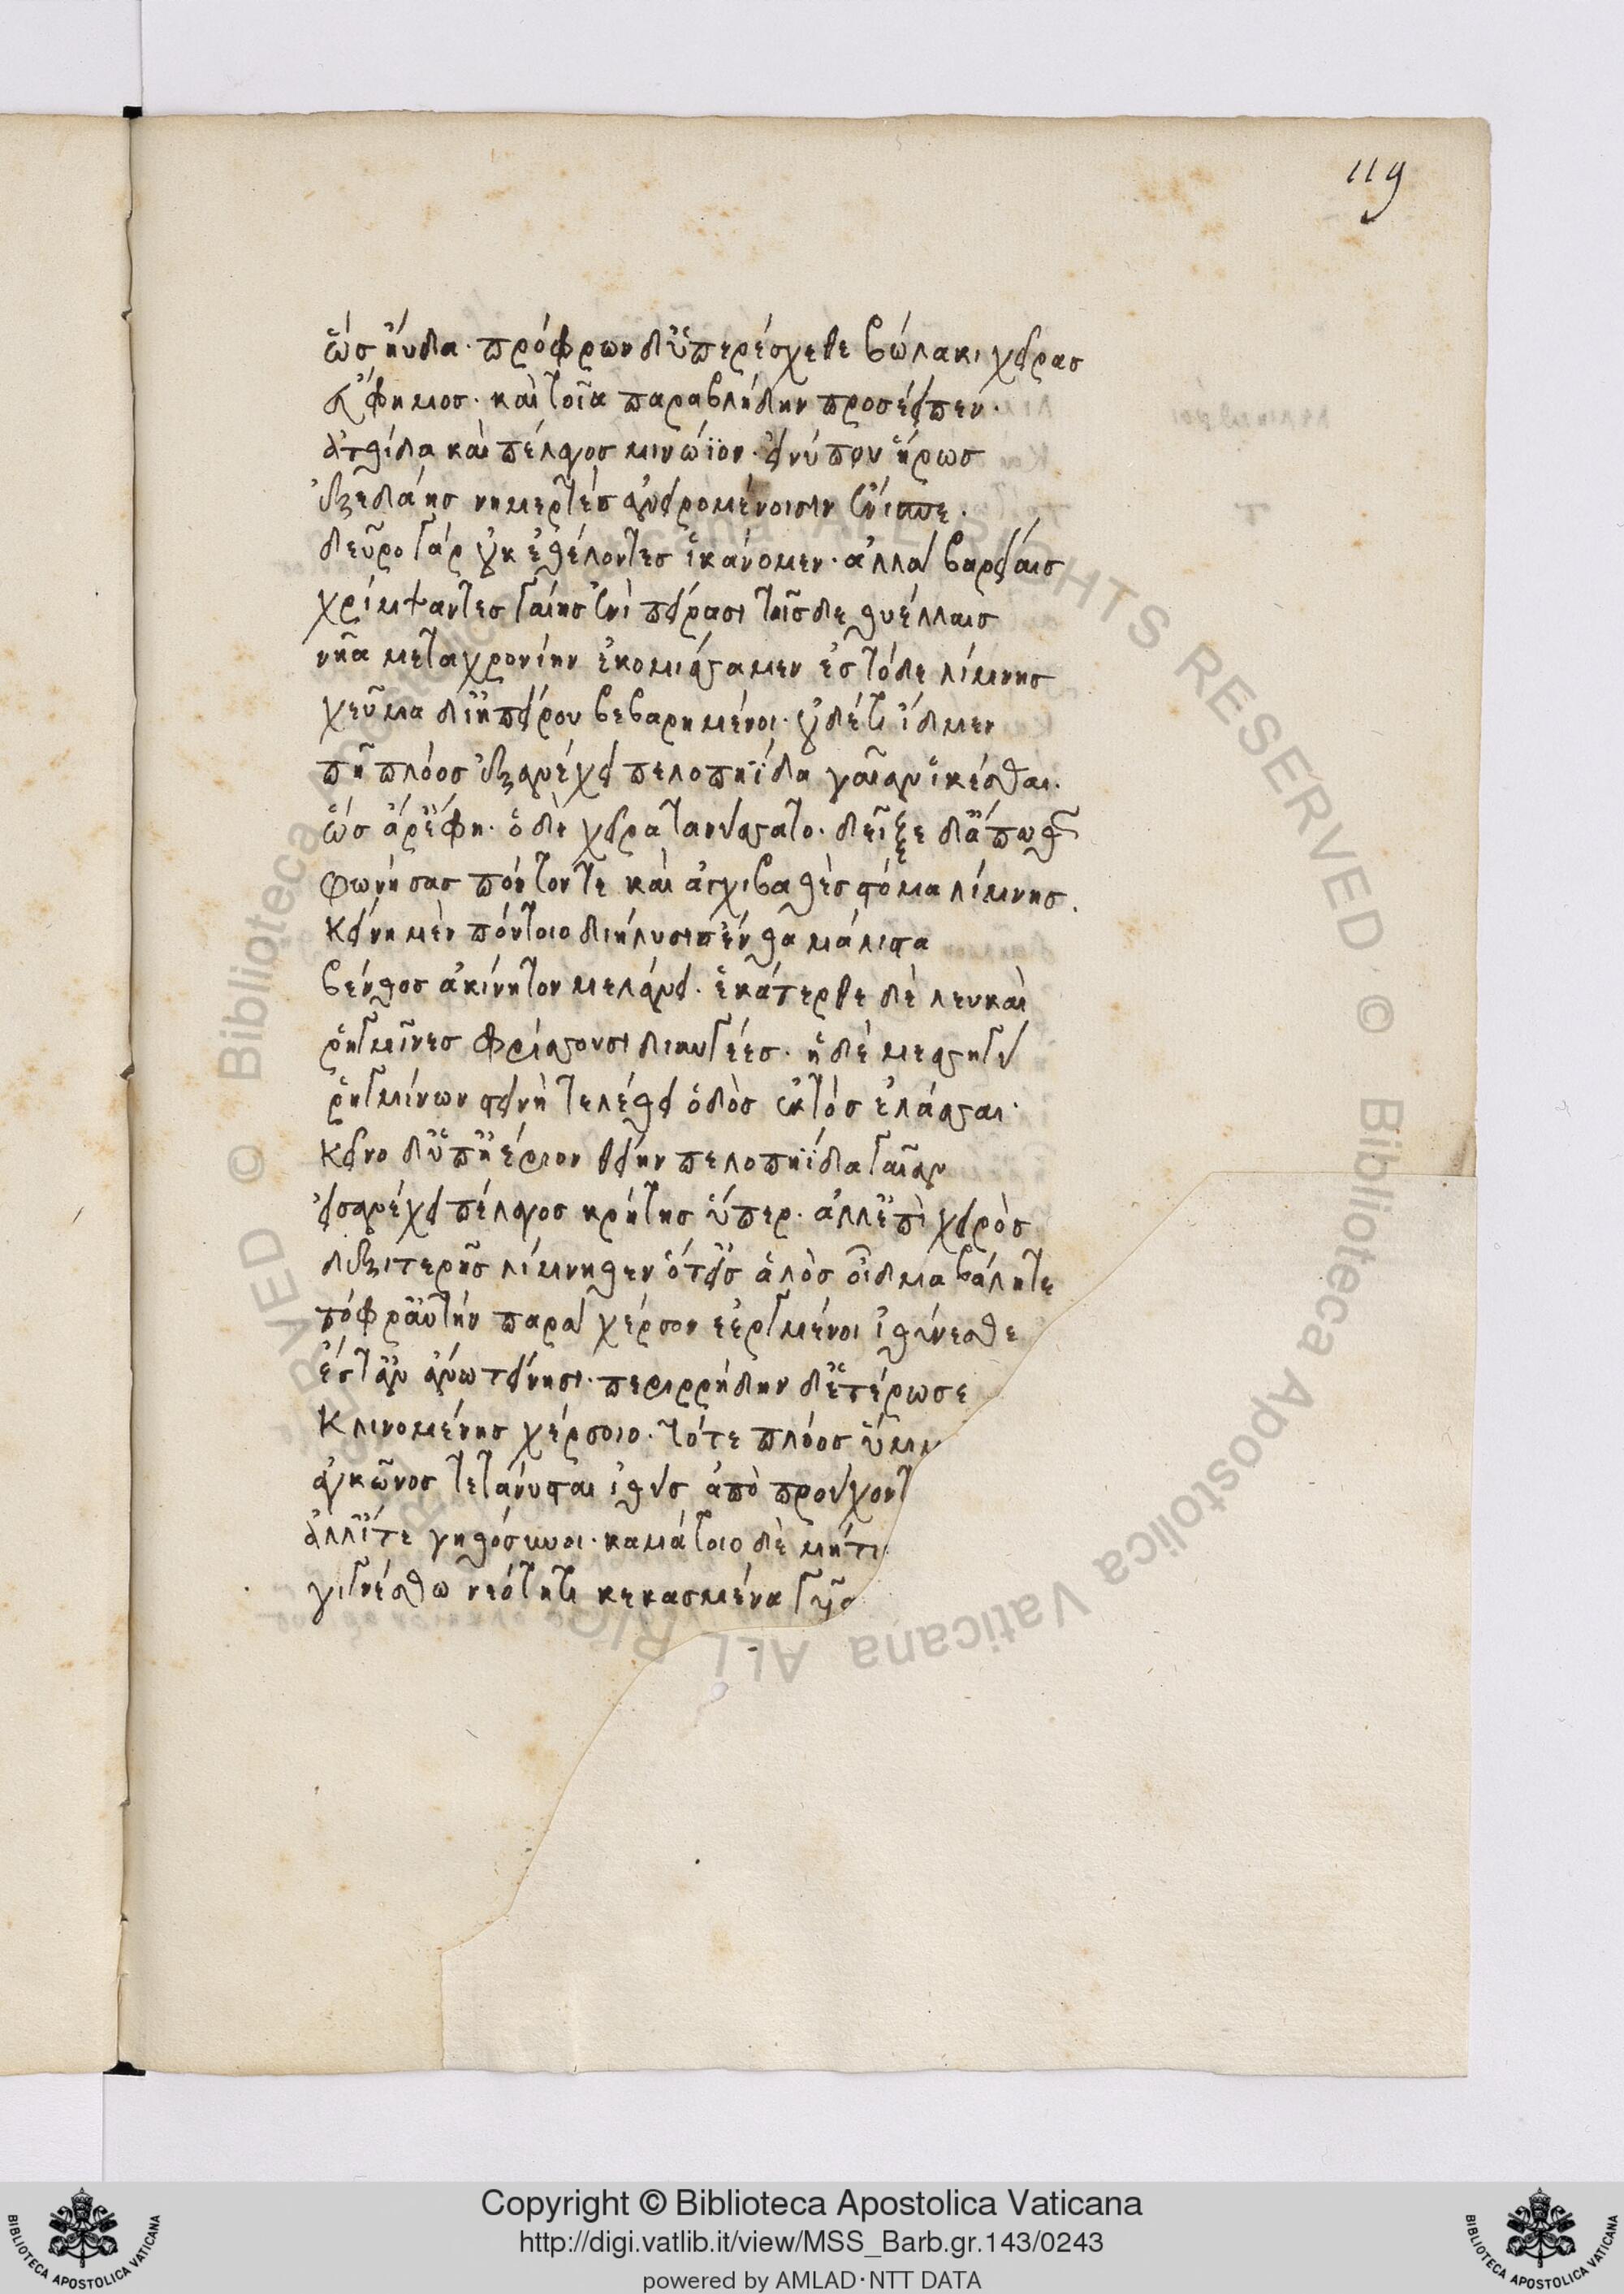 119
ὣς ηὔδα· πρόφρων δ' ὑπερέσχεθε βώλακι χεῖρας
εὔφημος· καὶ τοῖα παραβλήδην προσέειπεν·
ἀτθίδα καὶ πέλαγος μινώϊον· εἴ νύ που ἥρως
ἐξεδάης νημερτὲς ἀνειρομένοισιν ἔνισπε.
δεῦρο γὰρ οὐκ ἐθέλοντες ἱκάνομεν· ἀλλὰ βαρείαις
χρίμψαντες γαίης ἐνὶ πείρασι τῆσδε θυέλλαις
νῆα μεταχρονίην ἐκομίσσαμεν ἐς τόδε λίμνης
χεῦμα δι' ἠπείρου βεβαρημένοι· οὐδέ τι ἴδμεν
πῆ πλόος ἐξανέχει πελοπηΐδα γαῖαν ἱκέσθαι.
ὣς ἄρ' ἔφη· ὁ δὲ χεῖρα τανύσσατο· δεῖξε δ' ἄπωθεν
φωνήσας πόντον τε καὶ ἀγχιβαθὲς στόμα λίμνης.
κείνη μὲν πόντοιο διήλυσις ἔνθα μάλιστα
βένθος ἀκίνητον μελάνει· ἑκάτερθε δὲ λευκαὶ
ῥηγμῖνες φρίσσουσι διαυγέες· ἡ δὲ μεσηγὺ
ῥηγμίνων στεινὴ τελέθει ὁδὸς ἐκτὸς ἐλάσσαι·
κεῖνο δ' ὑπ' ἠέριον θείην πελοπηΐδα γαῖαν
εἰσανέχει πέλαγος κρήτης ὕπερ· ἀλλ' ἐπὶ χειρὸς
δεξιτερῆς λίμνηθεν ὅτ' εἰς ἁλὸς οἶδμα βάλητε
τόφρ' αὐτὴν παρὰ χέρσον ἐεργμένοι ἰθύνεσθε
ἔς τ' ἂν ἄνω τείνησι· περιρρήδην δ' ἑτέρωσε
κλινομένης χέρσοιο· τότε πλόος ὔμμιν
ἀγκῶνος τετάνυσται ἰθὺς ἀπὸ προύχοντ
ἀλλ' ἴτε γηθόσυνοι· καμάτοιο δὲ μήτι
γιγνέσθω νεότητι κεκασμένα γυῖα
Copyright © Biblioteca Apostolica Vaticana
http://digi.vatlib.it/view/MSS_Barb.gr.143/0243
powered by AMLAD·NTT DATA